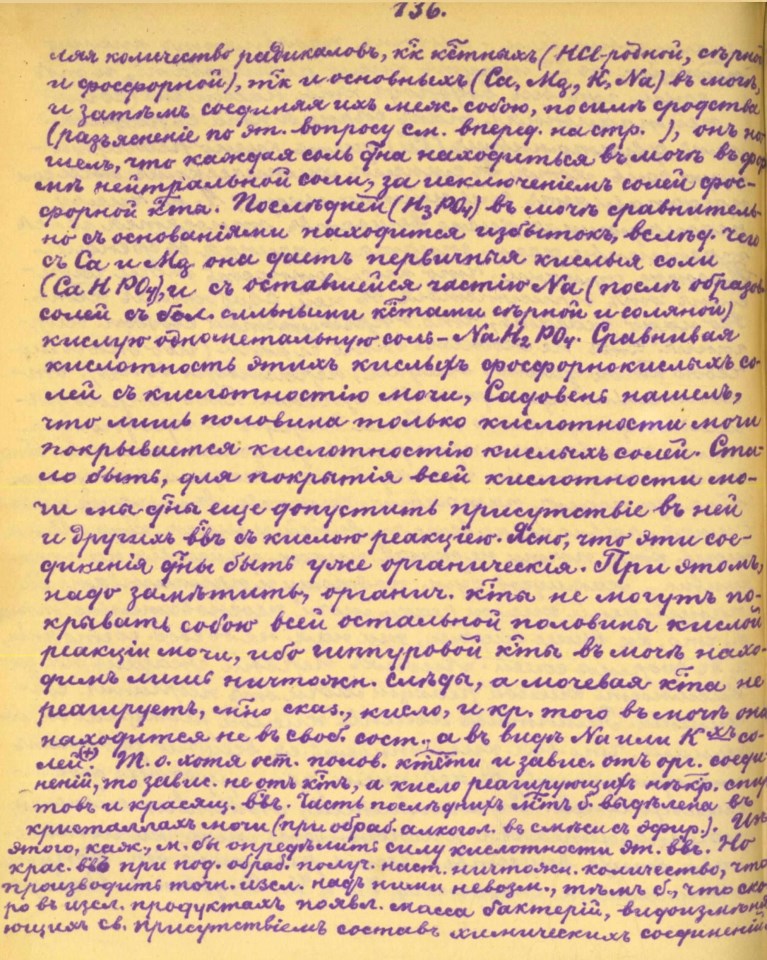 136.
ляя количество радикаловъ, к҃к к҃тныхъ (HCl-родной, сѣрной
и фосфорной), т҃к и основныхъ (Ca, Mg, K, Na) въ мочѣ,
и затѣмъ соединяя ихъ меж. собою, по силѣ сродства
(разъясненіе по эт. вопросу см. вперед. на стр. ), онъ на-
шелъ, что каждая соль д҃на находиться въ мочѣ въ фор-
мѣ нейтральной соли, за исключеніемъ солей фос-
форной к҃ты. Послѣдней (H3PO4) въ мочѣ сравнитель-
но съ основаніями находится избытокъ, вслѣд. чего
съ Ca и Mg она дастъ первичныя кислыя соли
(CaHPO4), и съ оставшейся частію Na (послѣ образов.
солей съ бол. сильными к҃тами сѣрной и соляной)
кислую однометальную соль - NaH2PO4. Сравнивая
кислотность этихъ кислыхъ фосфорнокислыхъ со-
лей съ кислотностію мочи, Садовень нашелъ,
что лишь половина только кислотности мочи
покрывается кислотностію кислыхъ солей. Ста-
ло быть, для покрытія всей кислотности мо-
чи мы д҃ны еще допустить присутствіе въ ней
и другихъ в҃въ съ кислою реакціею. Ясно, что эти сое-
диненія д҃ны быть уже органическія. При этомъ,
надо замѣтить, органич. к҃ты не могутъ по-
крывать собою всей остальной половины кислой
реакціи мочи, ибо гиппуровой к҃ты въ мочѣ нахо-
димъ лишь ничтожн. слѣды, а мочевая к҃та не
реагируетъ, м҃но сказ., кисло, и кр. того въ мочѣ она
находится не въ своб. сост., а въ видѣ Na или K хъ со-
лей (+). Т. о. хотя ост. полов. к҃тсти и завис. отъ орг. соеди-
неній, то завис. не отъ к҃тъ, а кисло реагирующихъ нѣкр. спир-
товъ и красящ. в҃въ. Часть послѣднихъ м҃тъ б. выдѣлена въ
кристаллахъ мочи (при обраб. алкогол. въ смѣси съ эфир.). Изъ
этого, каж., м. бы опредѣлить силу кислотности эт. в҃въ. Но
крас. в҃въ при под. обраб. получ. наст. ничтожн. количество, что
производить точн. изсл. надъ ними невозм., тѣмъ б., что ско-
ро въ изсл. продуктахъ появл. масса бактерій, видоизмѣня-
ющихъ св. присутствіемъ составъ химическихъ соединеній